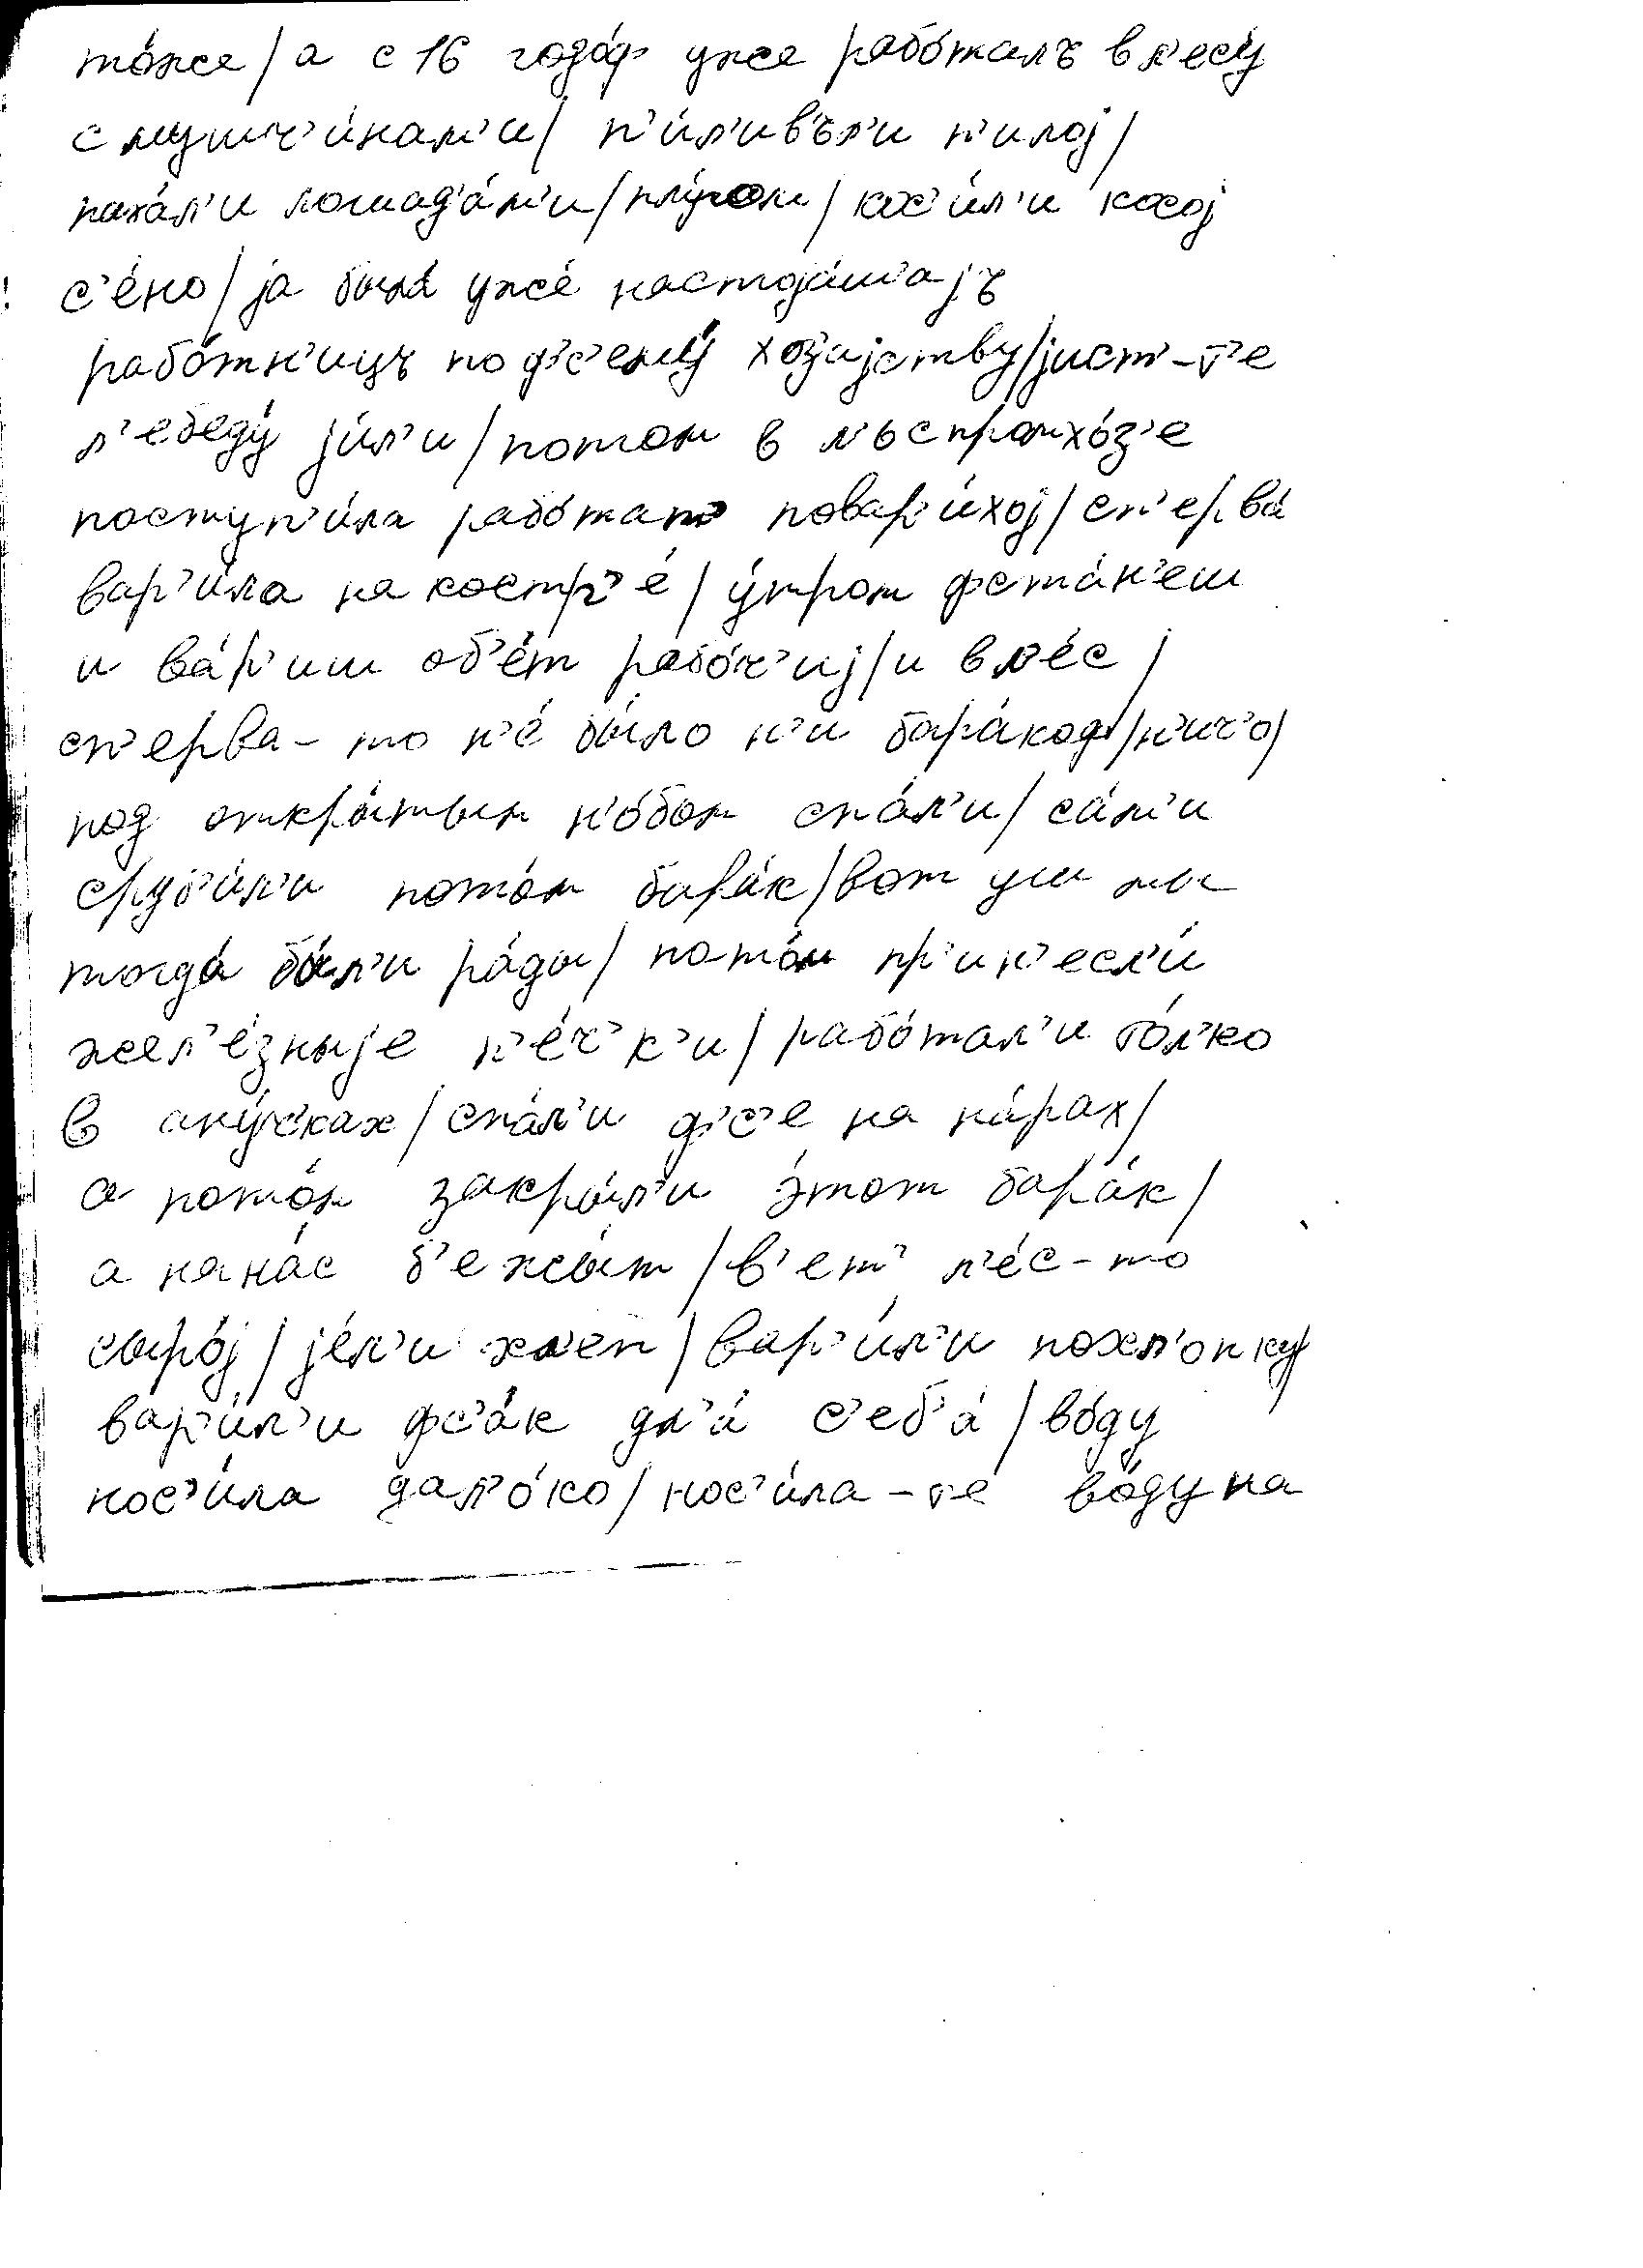 то́же / а с 16 годо́ф уже рабо́талъ в л'есу́
с мушч'и́нам'и / п'и́л'ивъл'и п'илоj /
паха́л'и лошад'а́м'и / плу́гом / кос'и́л'и косоj
с'е́но / jа была́ уже́ настоjа́ш'аjъ
рабо́тн'ицъ по ф'с'ему́ хоз'аjству / jист'-т'е
л'ебеду́ jи́л'и / потом в л'ьспромхо́з'е
поступ'и́ла рабо́тат' повар'и́хоj / сп'ерва́
вар'и́ла на костр'е́ / у́тром фста́н'еш
и ва́р'иш об'е́т рабо́ч'иj / и в л'е́с /
сп'ерва-то н'е́ было н'и бара́коф / н'ич'о /
под откры́тым н'о́бом спа́л'и / са́м'и
сруб'и́л'и пото́м бара́к / вот уш мы
тогда́ бы́л'и ра́ды / пото́м пр'ин'есл'и́
жел'е́зныjе п'е́ч'к'и / рабо́тал'и то́л'ко
в опу́ска́х / спа́л'и ф'с'е на на́рах /
а пото́м закры́л'и э́тот бара́к /
а на на́с б'ежы́т / в'ет' л'е́с-то
сыро́j / jе́л'и хл'еп / вар'и́л'и похл'опку /
вар'и́л'и фс'а́к дл'а́ с'еб'а́ / во́ду
нос'и́ла дал'о́ко / нос'и́ла-т'е во́ду на